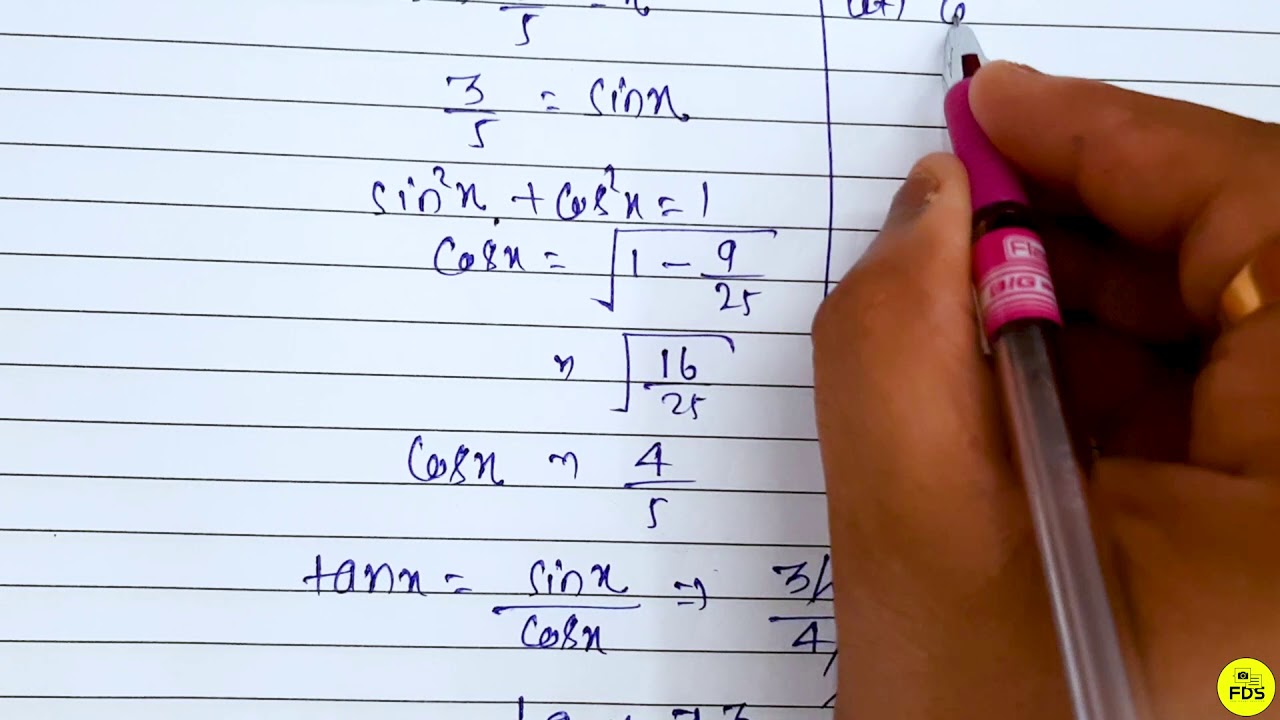 3/5 = sinx
sin²x + cos²x = 1
cosx = √(1 - 9/25)
√(16/25)
cosx 4/5
tanx = sinx/cosx ⇒ 3/ 4/
FDS